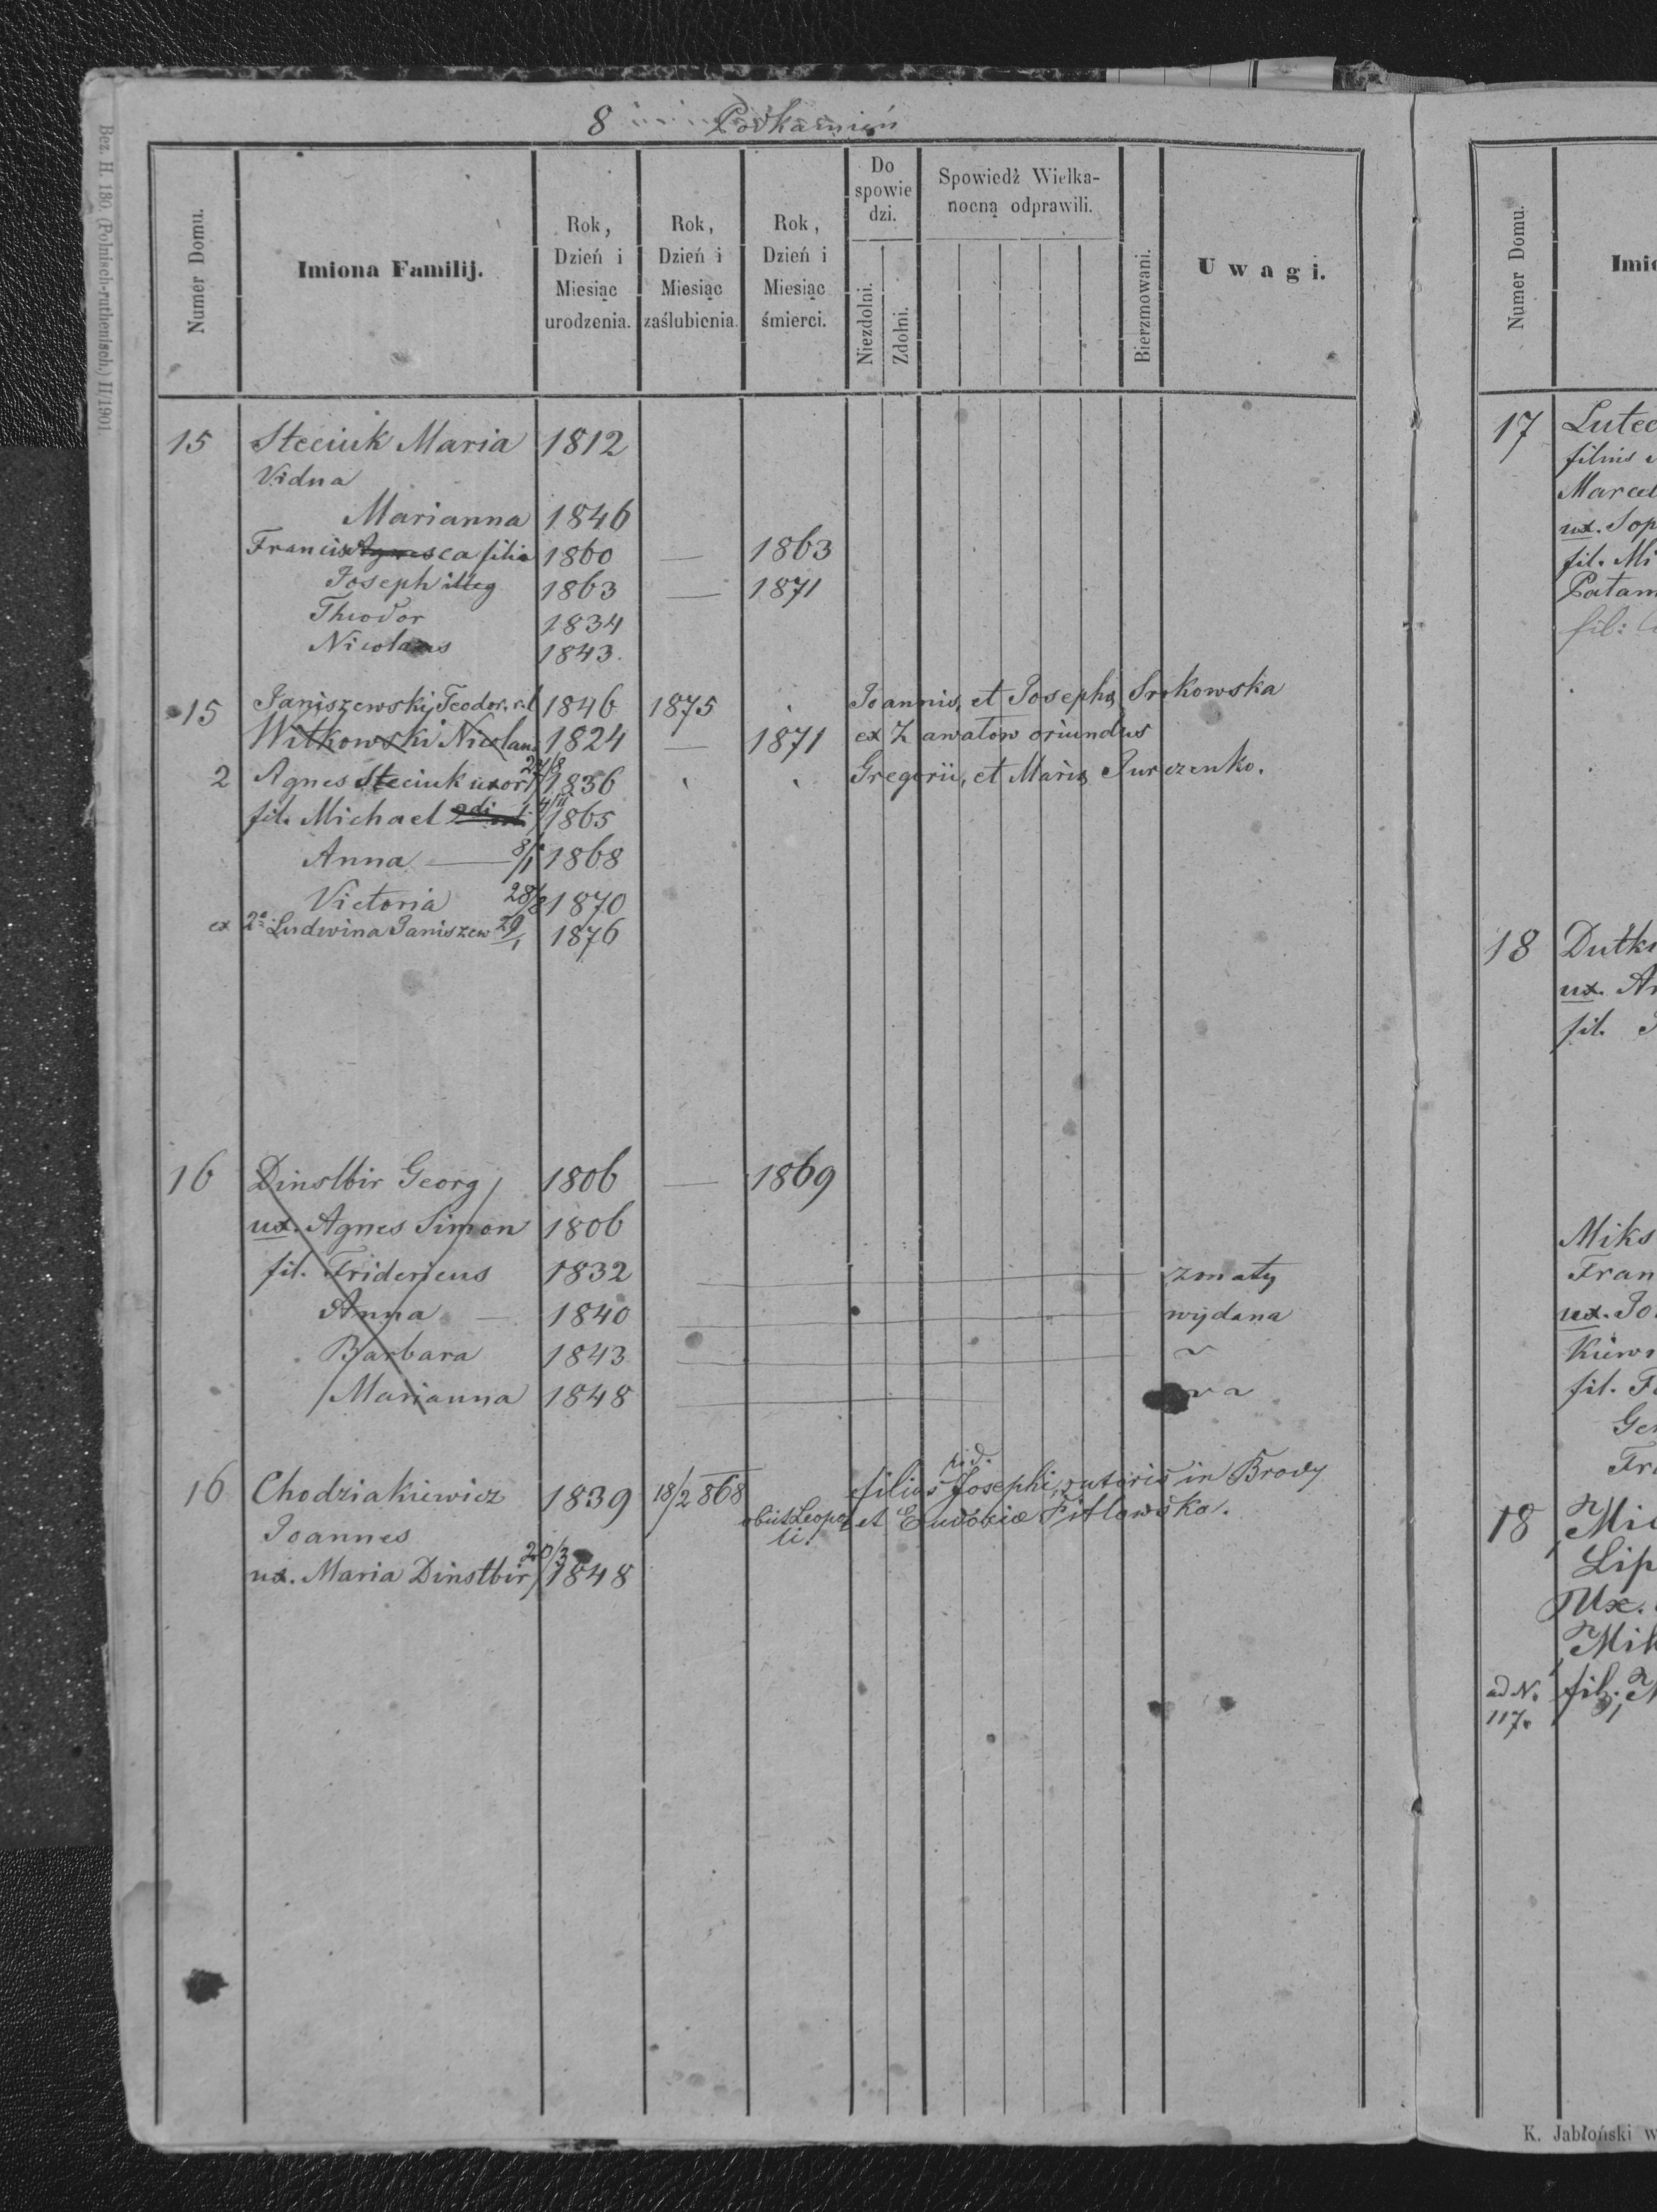 8 Podkamień
Bez. H. 180. (Polnisch-ruthenisch.) II/1901.
Numer Domu.
Imiona Familij.
Rok, Dzień i Miesiąc urodzenia.
Rok, Dzień i Miesiąc zaślubienia.
Rok, Dzień i Miesiąc śmierci.
Do spowie dzi.
Niezdolni.
Zdolni.
Spowiedź Wielka-
nocną odprawili.
Bierzmowani.
Uwagi.
15 Steciuk Maria 1812
Vidua
Marianna 1846
Francisca filia 1860 — 1863
Joseph illeg 1863 — 1871
Theodor 1834
Nicolaus 1843.
15 Janiszewski Teodor. r.l 1846 1875 Joannis, et Josepha Srokowska
Witkowski Nicolaus 1824 — 1871 ex Zawatów oriundus
2 Agnes Steciuk uxor 24/8 1836 Gregorii, et Maria Jurczenko.
fil. Michael 4/11 1865
Anna — 8/1 1868
Victoria 28/8 1870
ex 2° Ludwina Janiszew 29/1 1876
16 Dinstbir Georg 1806 — 1869
ux. Agnes Simon 1806
fil. Fridericus 1832 żonaty
Anna — 1840 wydana
Barbara 1843 ~
Marianna 1848
16 Chodziakiewicz 1839 18/2 868 filius Josephi, sutoris in Brody
Joannes obiit Leopoli! et Eudoxiæ Fitlawska.
ux. Maria Dinstbir 20/3 1848
Numer Domu.
Imio
17 Lutec
filius
Marcel
ux. Sop
fil. Mi
Patam
fil:
18 Dutk
ux. A
fil.
Miks
Fran
ux. Jo
Kiew
fil. F
Ge
Fr
18 Mi
Lip
Ux.
Mik
ad N. fil.
117.
K. Jabłoński w